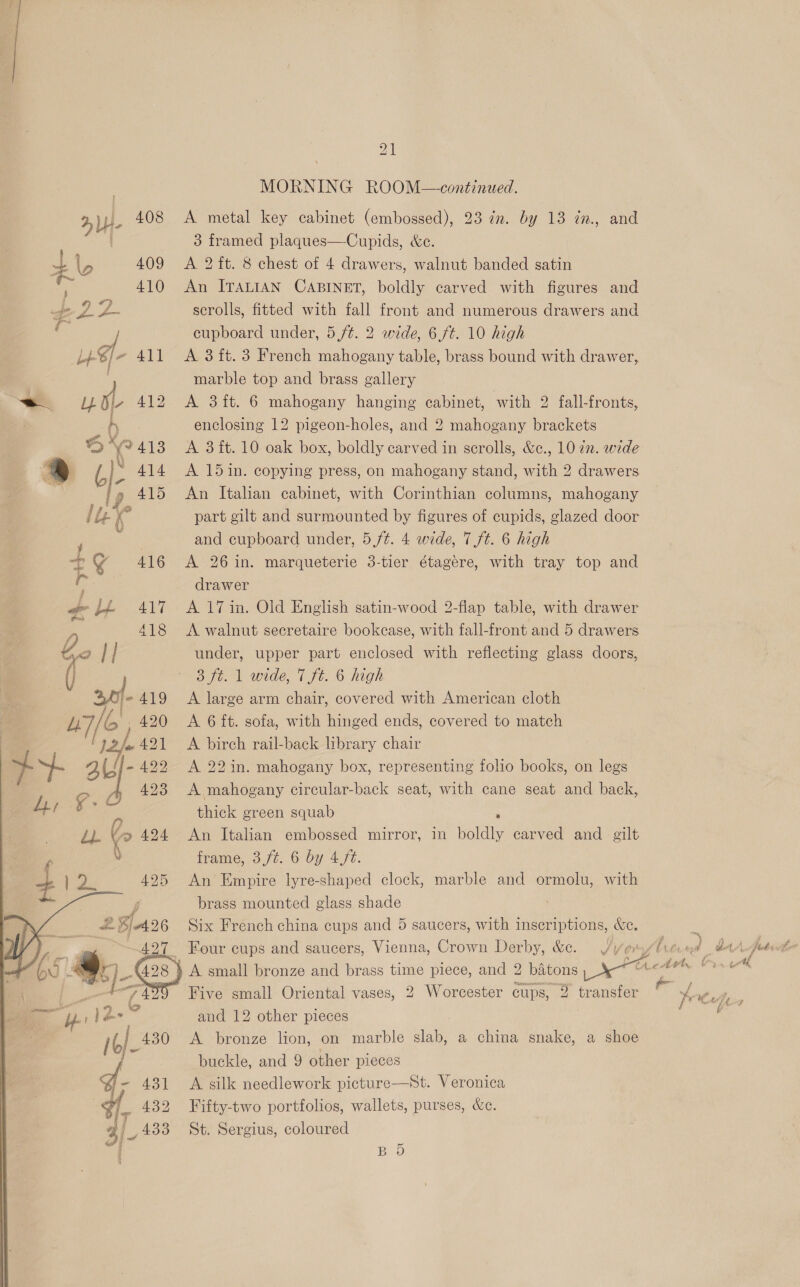 21
MORNING ROOM—continued.
408 A metal key cabinet (embossed), 23 in. by 13 in., and
3 framed plaques—Cupids, &c.
409 A 2 ft. 8 chest of 4 drawers, walnut banded satin
410 An ITALIAN CABINET, boldly carved with figures and
scrolls, fitted with fall front and numerous drawers and
cupboard under, 5 ft. 2 wide, 6 ft. 10 high
411 A 3 ft. 3 French mahogany table, brass bound with drawer,
marble top and brass gallery
412 A 3 ft. 6 mahogany hanging cabinet, with 2 fall-fronts,
enclosing 12 pigeon-holes, and 2 mahogany brackets
413 A 3 ft. 10 oak box, boldly carved in scrolls, &c., 10 in. wide
414 A 15 in. copying press, on mahogany stand, with 2 drawers
415 An Italian cabinet, with Corinthian columns, mahogany
part gilt and surmounted by figures of cupids, glazed door
and cupboard under, 5 ft. 4 wide, 7 ft. 6 high
416 A 26 in. marqueterie 3-tier étagère, with tray top and
drawer
417 A 17 in. Old English satin-wood 2-flap table, with drawer
418 A walnut secretaire bookcase, with fall-front and 5 drawers
under, upper part enclosed with reflecting glass doors,
3 ft. 1 wide, 7 ft. 6 high
419 A large arm chair, covered with American cloth
420 A 6 ft. sofa, with hinged ends, covered to match
421 A birch rail-back library chair
422 A 22 in. mahogany box, representing folio books, on legs
423 A mahogany circular-back seat, with cane seat and back,
thick green squab
424 An Italian embossed mirror, in boldly carved and gilt
frame, 3 ft. 6 by 4 ft.
425 An Empire lyre-shaped clock, marble and ormolu, with
brass mounted glass shade
426 Six French china cups and 5 saucers, with inscriptions, &c.
427 Four cups and saucers, Vienna, Crown Derby, &c.
428 A small bronze and brass time piece, and 2 bâtons
429 Five small Oriental vases, 2 Worcester cups, 2 transfer
and 12 other pieces
430 A bronze lion, on marble slab, a china snake, a shoe
buckle, and 9 other pieces
431 A silk needlework picture—St. Veronica
432 Fifty-two portfolios, wallets, purses, &c.
433 St. Sergius, coloured
B 5